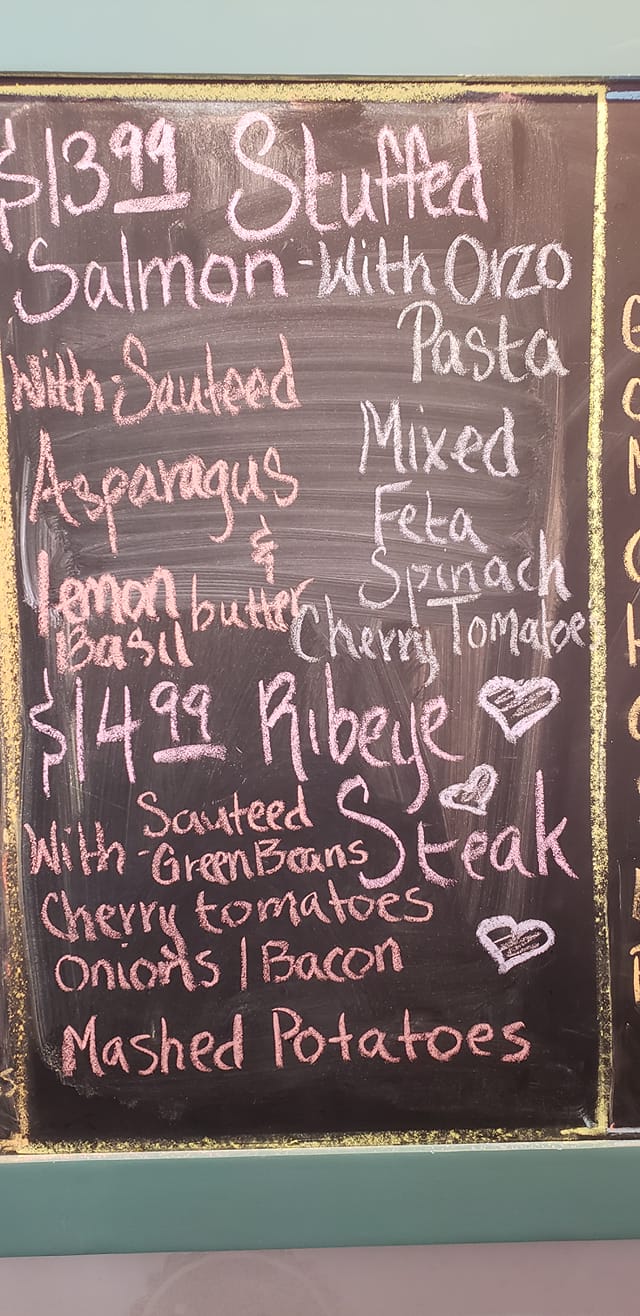 $13.99 Stuffed
Salmon - With Orzo
Pasta
With - Sauteed
Asparagus
&
Lemon butter
Basil
Mixed
Feta
Spinach
Cherry Tomatoes
$14.99 Ribeye
Steak
With - Sauteed
Green Beans
Cherry tomatoes
Onions | Bacon
Mashed Potatoes